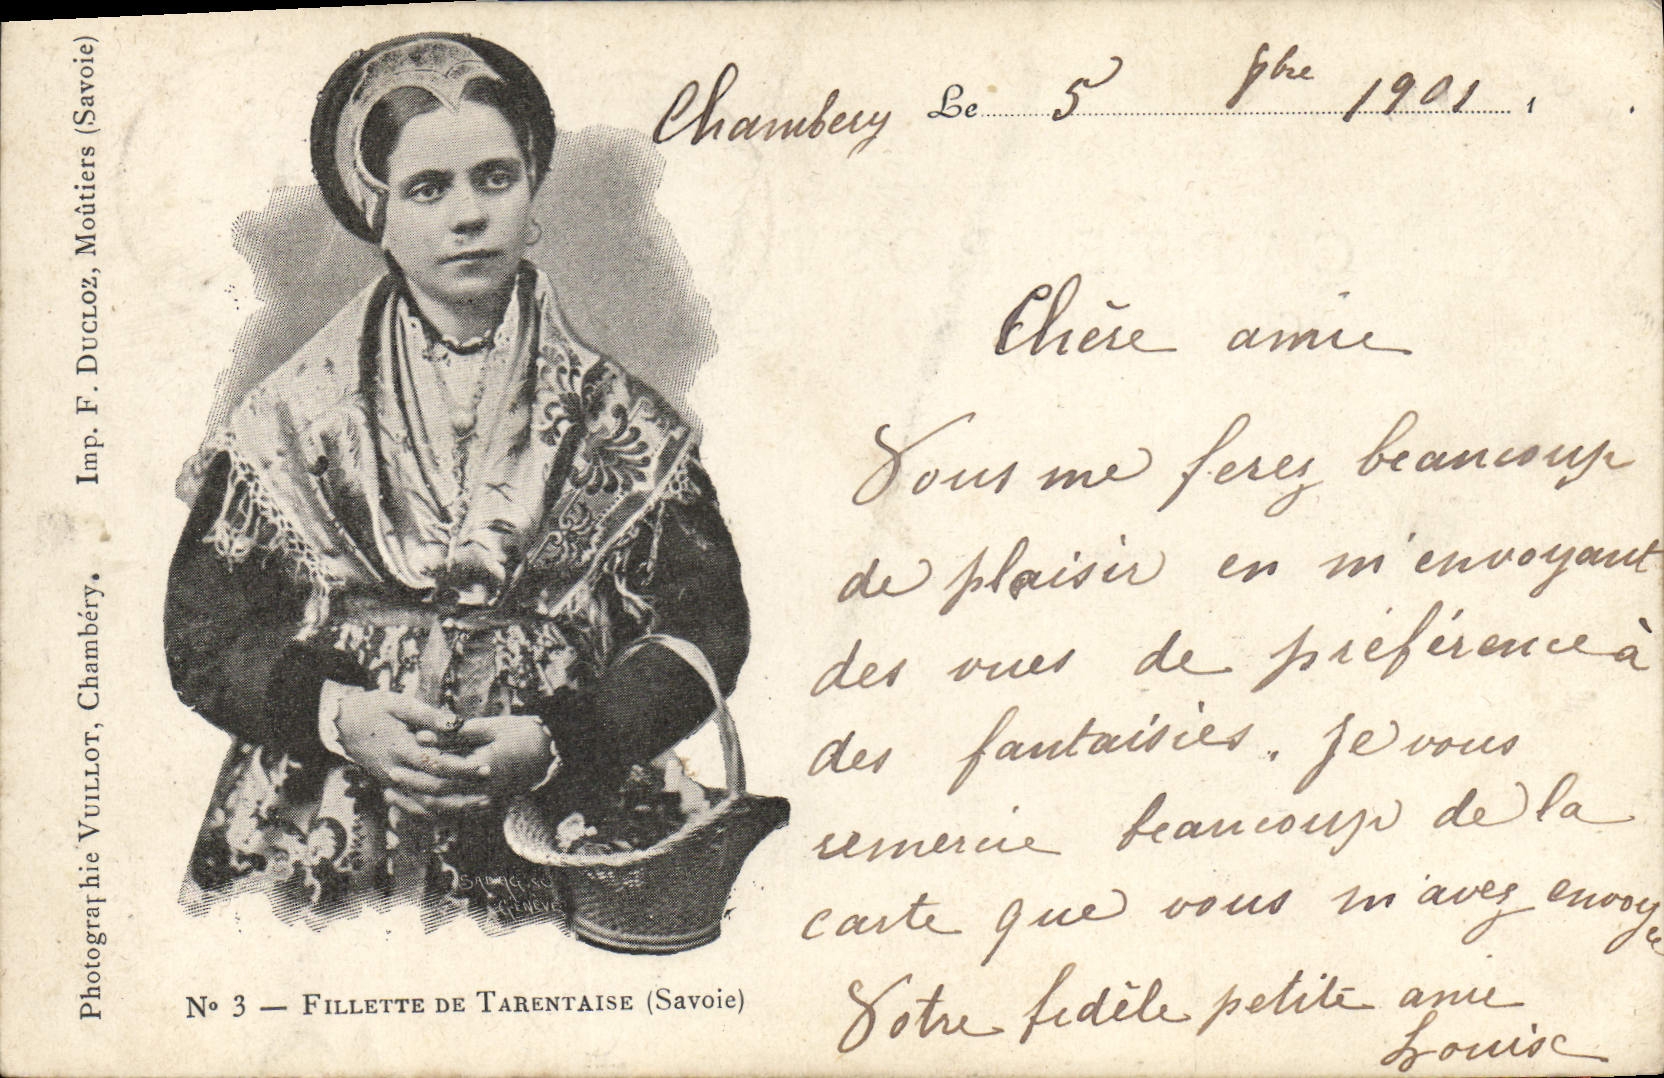 Chambery Le 5 9bre 1901
Chère amie
Vous me ferez beaucoup
de plaisir en m'envoyant
des vues de préférence à
des fantaisies. Je vous
remercie beaucoup de la
carte que vous m'avez envoyée
Votre fidèle petite amie
Louise
Nº 3 — FILLETTE DE TARENTAISE (Savoie)
Photographie VUILLOT, Chambéry. Imp. F. DUCLOZ, Moûtiers (Savoie)